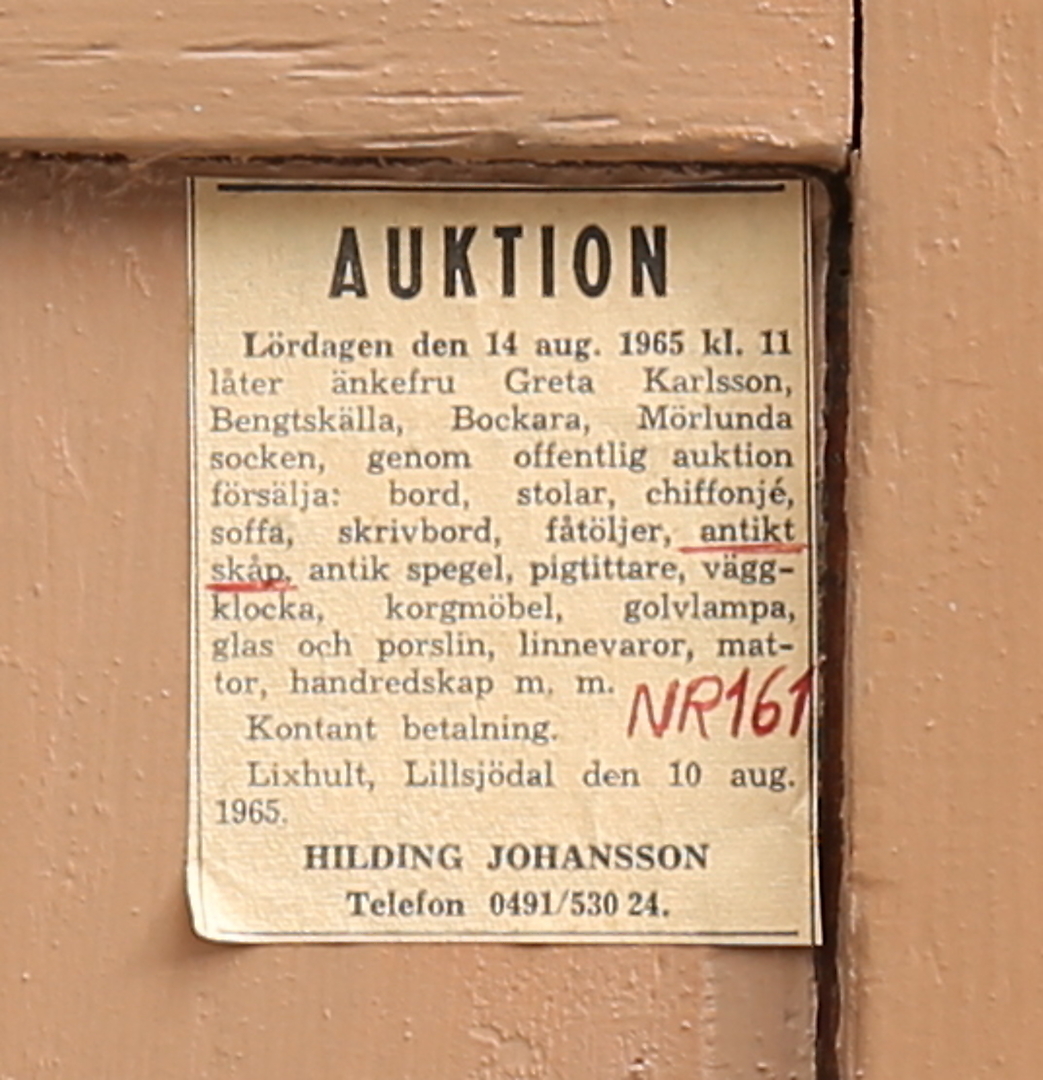 AUKTION
Lördagen den 14 aug. 1965 kl. 11
låter änkefru Greta Karlsson,
Bengtskälla, Bockara, Mörlunda
socken, genom offentlig auktion
försälja: bord, stolar, chiffonjé,
soffa, skrivbord, fåtöljer, antikt
skåp, antik spegel, pigtittare, vägg-
klocka, korgmöbel, golvlampa,
glas och porslin, linnevaror, mat-
tor, handredskap m. m.
NR161
Kontant betalning.
Lixhult, Lillsjödal den 10 aug.
1965.
HILDING JOHANSSON
Telefon 0491/530 24.